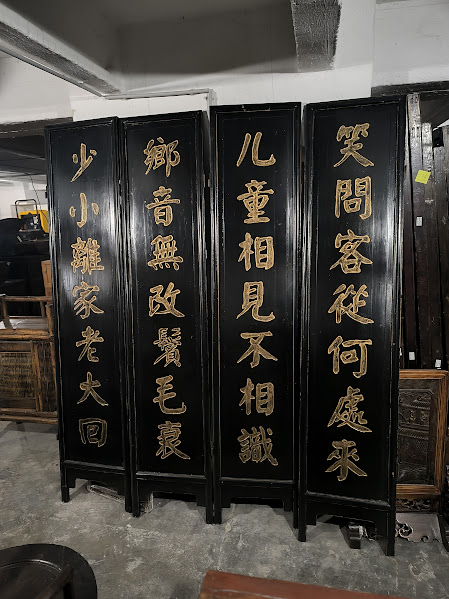 少小離家老大回
鄉音無改鬢毛衰
儿童相見不相識
笑問客從何處來